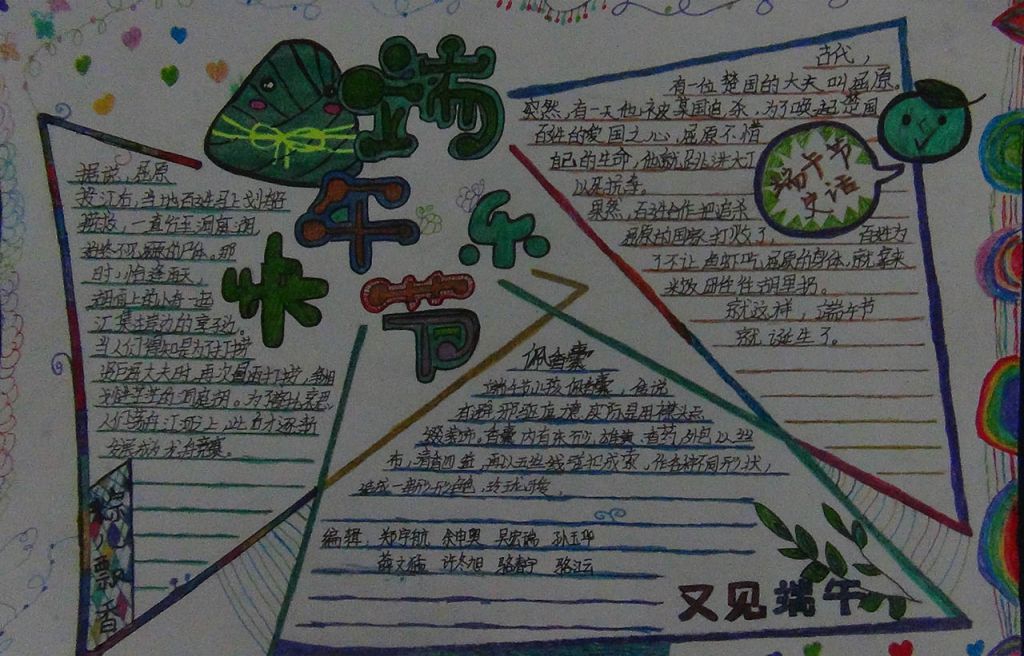 端午节
快乐
据说，屈原
投江后，当地百姓马上划船
捞救，一直行至洞庭湖，
始终不见屈原的尸体。那
时，恰逢雨天，
湖面上的小舟一起
汇集在岸边的亭子边。
当人们得知是为了打捞
大夫时，再次冒雨打捞，争相
划进茫茫的洞庭湖。为了寄托哀思，
人们荡舟江河上，此后才逐渐
发展成为龙舟竞赛。
粽飘香
古代，
有一位楚国的大夫叫屈原。
突然，有一天他被某国追杀，为了唤起楚国
百姓的爱国之心，屈原不惜
自己的生命，他就跳进大江
以死抗秦。
果然，百姓合作把追杀
屈原的国家打败了。百姓为
了不让鱼虾吃屈原的身体，就拿来
米饭
就这样，端午节
就诞生了。
端午节
史话
佩香囊
端午节小孩佩香囊，传说
有避邪驱瘟之意，实际是用于襟头点
缀装饰。香囊内有朱砂、雄黄、香药，外包以丝
布，清香四溢，再以五色丝线弦扣成索，作各种不同形状，
结成一串，形形色色，玲珑可爱。
编辑：郑宇航 余中奥 吴宏瑞 孙玉华
薛文硕 许冬旭 骆春宁 骆江云
又见端午